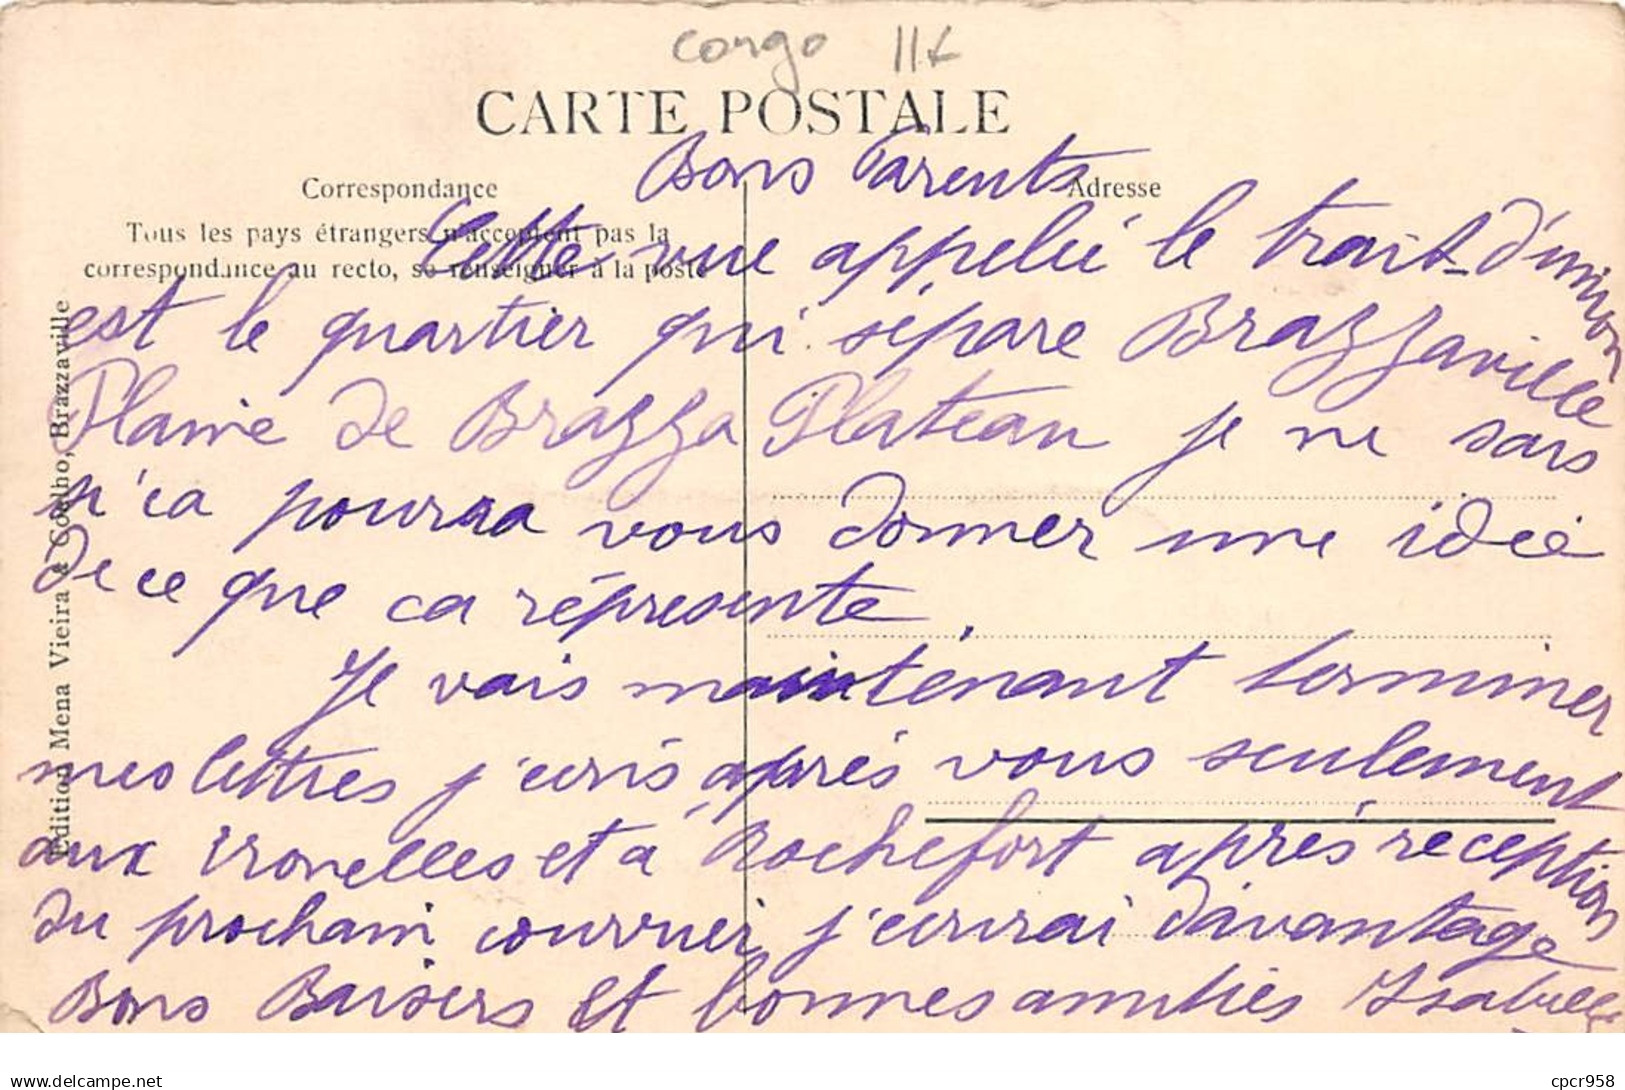 congo 11f
CARTE POSTALE
Correspondance
Adresse
Tous les pays étrangers n'acceptent pas la
correspondance au recto, se renseigner à la poste
Edition Mena Vieira & Coelho, Brazzaville
Bons Parents
Cette vue appeleé le trait-d'union
est le quartier qui sépare Brazzaville
Plaine de Brazza Plateau je ne sais
s'ca pourra vous donner une idée
de ce que ca réprésente.
Je vais maintenant terminer
mes lettres j'ecris aprés vous seulement
aux et a Rochefort aprés reception
du prochain courrier, j'ecrirai davantage
Bons Baisers et bonnes amitiés Isabelle
delcampe.net
cpcr958